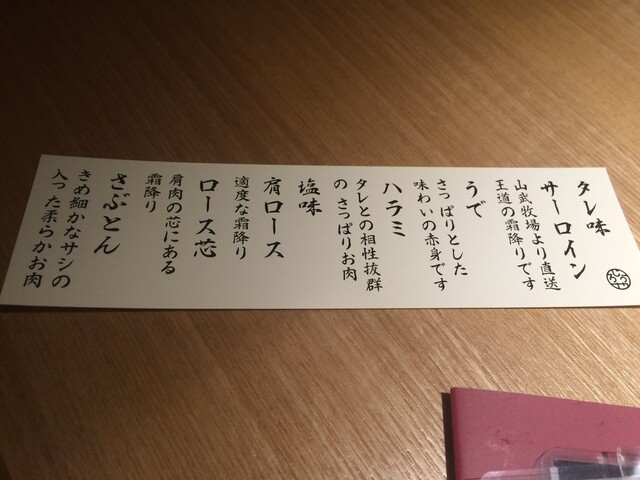 タレ味
サーロイン
山武牧場より直送
王道の霜降りです
うで
さっぱりとした
味わいの赤身です
ハラミ
タレとの相性抜群
の さっぱりお肉
塩味
肩ロース
適度な霜降り
ロース芯
肩肉の芯にある
霜降り
さぶとん
きめ細かなサシの
入った柔らかお肉